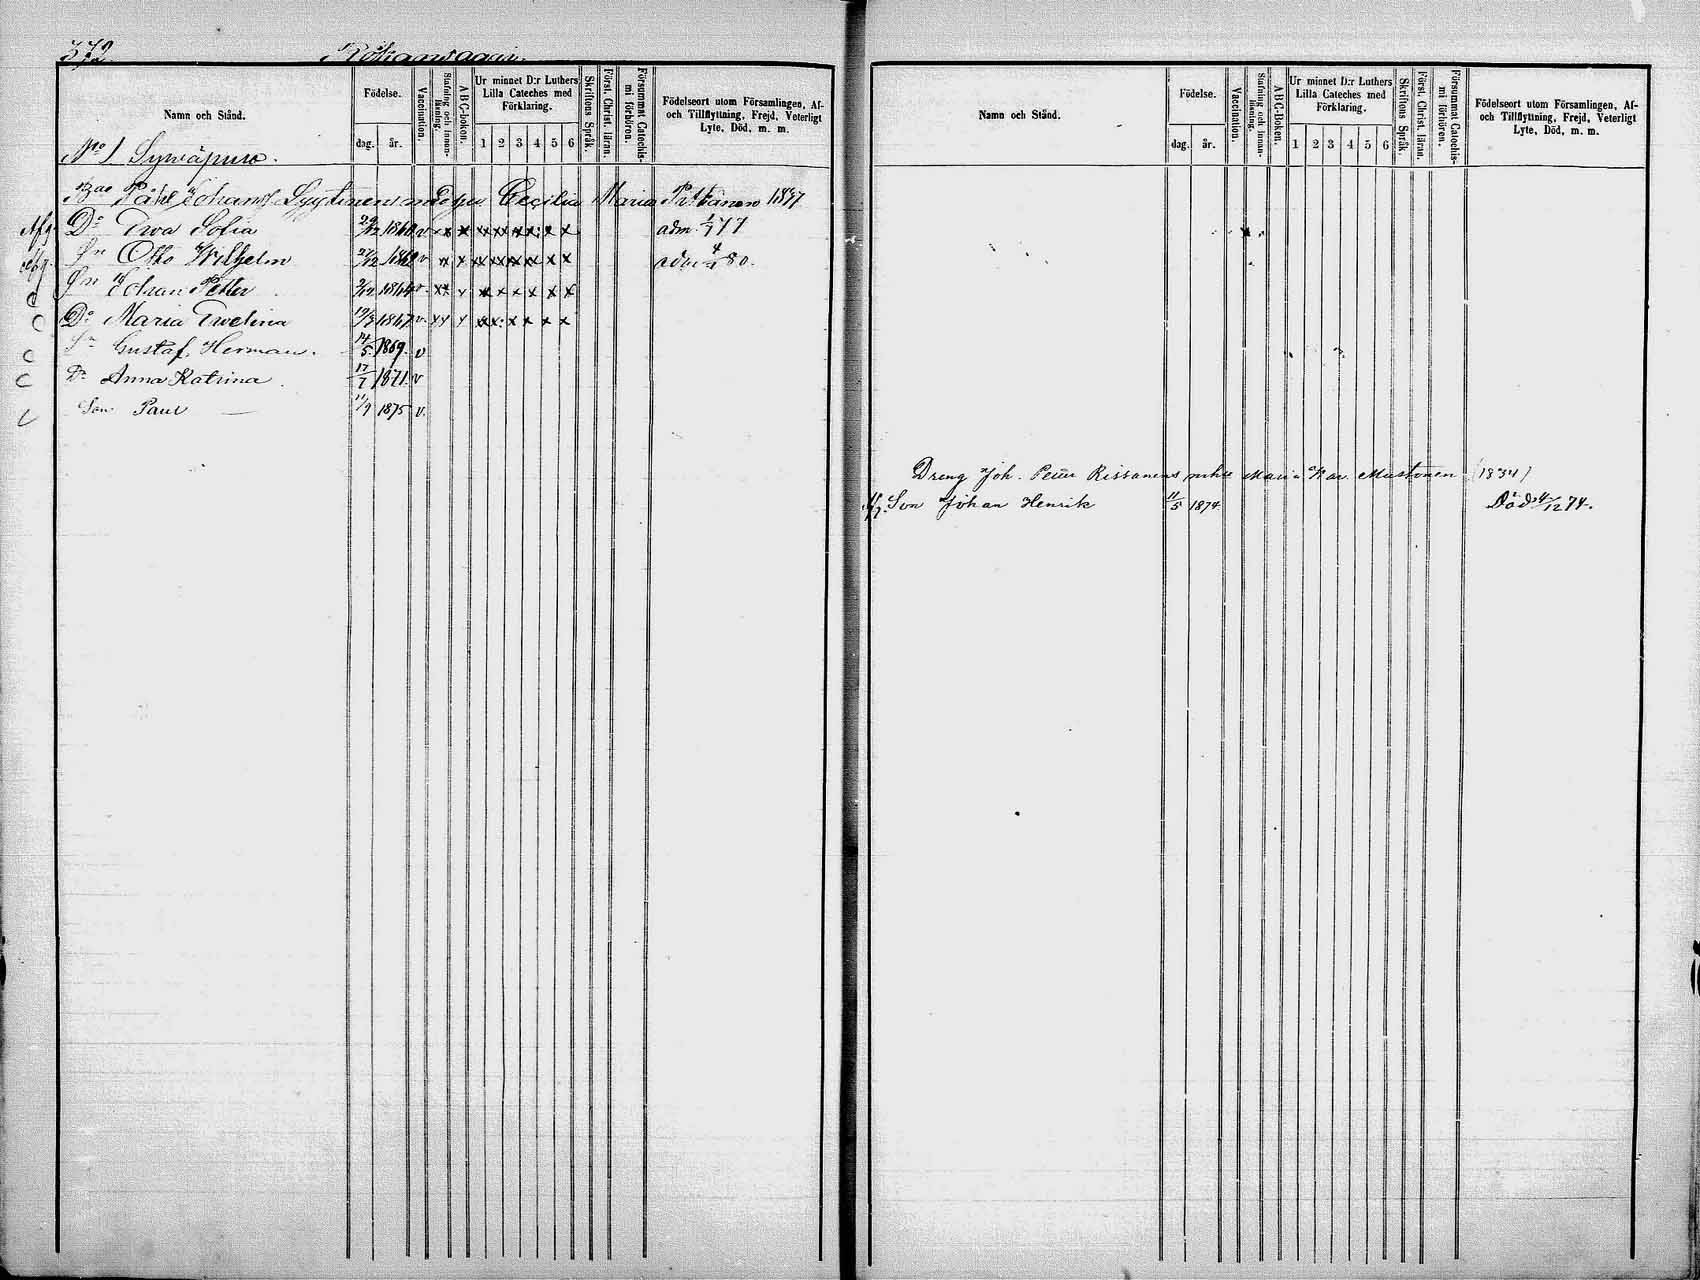 372.
Namn och Stånd.
Födelse.
dag. år.
Vaccination.
Stafning och innan-läsning.
ABC-boken.
Ur minnet D:r Luthers Lilla Cateches med Förklaring.
1 2 3 4 5 6
Skriftens Språk.
Först. Christ. läran.
Försummat Catechis-mi förhören.
Födelseort utom Församlingen, Af- och Tillflyttning, Frejd, Veterligt Lyte, Död, m. m.
No 1
Påhl Johans Cecilia Maria 1837
Afg. Dr Ewa Sofia 29/12 1860 v x x x x x x x x adm. 77
Afg. Sn Otto Wilhelm 27/12 1862 v x x x x x x x x adm 80.
C Sn Johan Petter 2/12 1864 v. x x x x x x x x
C Dr Maria Ewelina 19/3 1867 v. x x x x x x x x
C Sn Gustaf Herman. 14/5 1869. v
C Dr Anna Katrina 17/7 1871. v
C Son Paul — 11/9 1875 v.
Namn och Stånd.
Födelse.
dag. år.
Vaccination.
Stafning och innan-läsning.
ABC-Boken.
Ur minnet D:r Luthers Lilla Cateches med Förklaring.
1 2 3 4 5 6
Skriftens Språk.
Först. Christ. läran.
Försummat Catechis-mi förhören.
Födelseort utom Församlingen, Af- och Tillflyttning, Frejd, Veterligt Lyte, Död, m. m.
Dreng Joh. Petter Rissanens Maria Kar. Mustonen (1834)
Son Johan Henrik 11/5 1874 Död 4/12 74.